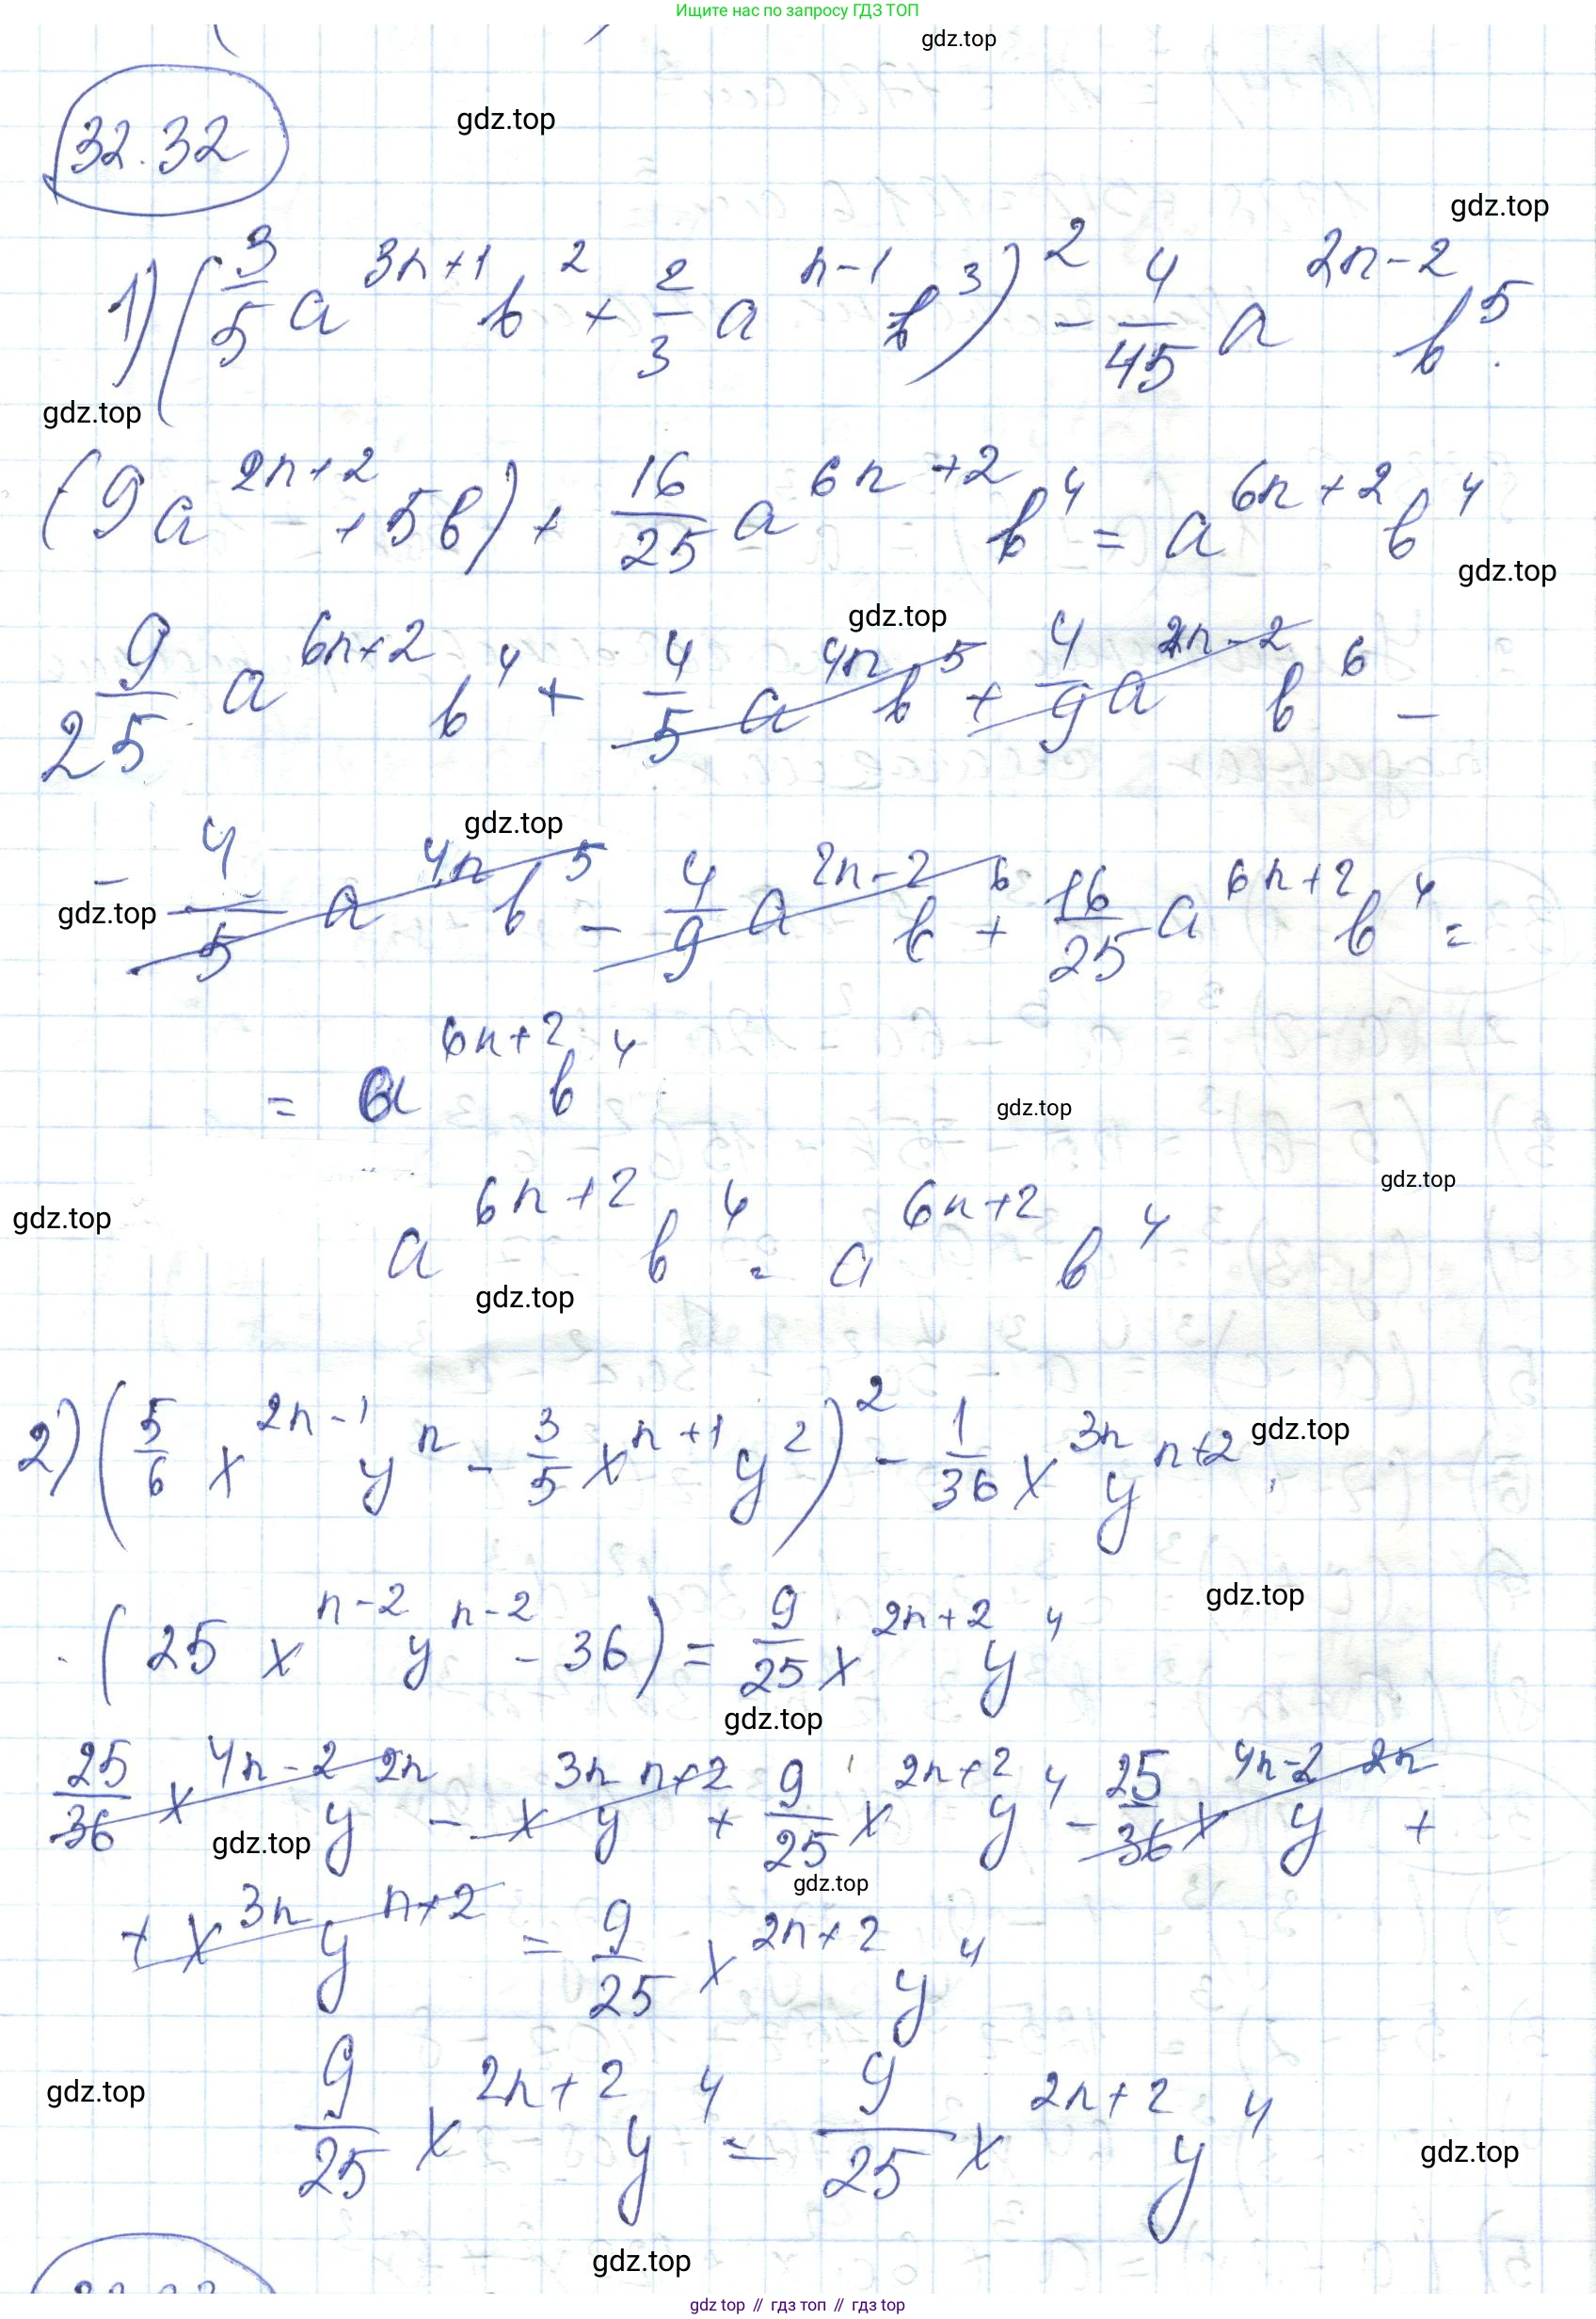 Ищите нас по запросу ГДЗ ТОП
gdz.top
32.32
gdz.top
gdz.top
1) (3/5 a^(3n+1) b^2 + 2/3 a^(n-1) b^3)^2 - 4/45 a^(2n-2) b^5 ·
gdz.top
(9a^(2n+2) + 5b) + 16/25 a^(6n+2) b^4 = a^(6n+2) b^4
gdz.top
gdz.top
9/25 a^(6n+2) b^4 + 4/5 a^(4n) b^5 + 4/9 a^(2n-2) b^6 -
gdz.top
- 4/5 a^(4n) b^5 - 4/9 a^(2n-2) b^6 + 16/25 a^(6n+2) b^4 =
gdz.top
= a^(6n+2) b^4
gdz.top
gdz.top
gdz.top
a^(6n+2) b^4 = a^(6n+2) b^4
gdz.top
2) (5/6 x^(2n-1) y^n - 3/5 x^(n+1) y^2)^2 - 1/36 x^(3n) y^(n+2) ·
gdz.top
· (25 x^(n-2) y^(n-2) - 36) = 9/25 x^(2n+2) y^4
gdz.top
gdz.top
25/36 x^(4n-2) y^(2n) - x^(3n) y^(n+2) + 9/25 x^(2n+2) y^4 - 25/36 x^(4n-2) y^(2n) +
gdz.top
gdz.top
+ x^(3n) y^(n+2) = 9/25 x^(2n+2) y^4
gdz.top
9/25 x^(2n+2) y^4 = 9/25 x^(2n+2) y^4
gdz.top
gdz.top
gdz top // гдз топ // gdz top